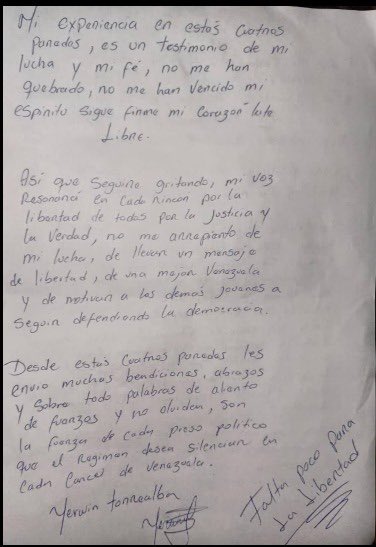 Mi experiencia en estás Cuatros
Paredes, es un testimonio de mi
lucha y mi fé, no me han
quebrado, no me han Vencido mi
Espíritu Sigue firme mi Corazón late
Libre.
Así que Seguire gritando, mi voz
Resonara en Cada rincon por la
libertad de todos por la Justicia y
la Verdad, no me arrepiento de
mi lucha, de llevar un mensaje
de libertad, de una mejor Venezuela
y de motivar a los demás Jovenes a
Seguir defendiendo la democracia.
Desde estás Cuatros paredes les
envio muchas bendiciones, abrazos
y Sobre todo palabras de aliento
de fuerzas y no olviden, Son
la fuerza de Cada preso político
que el Regimen desea Silenciar en
Cada Carcel de Venezuela.
Yerwin Torrealba
Falta poco para
La Libertad